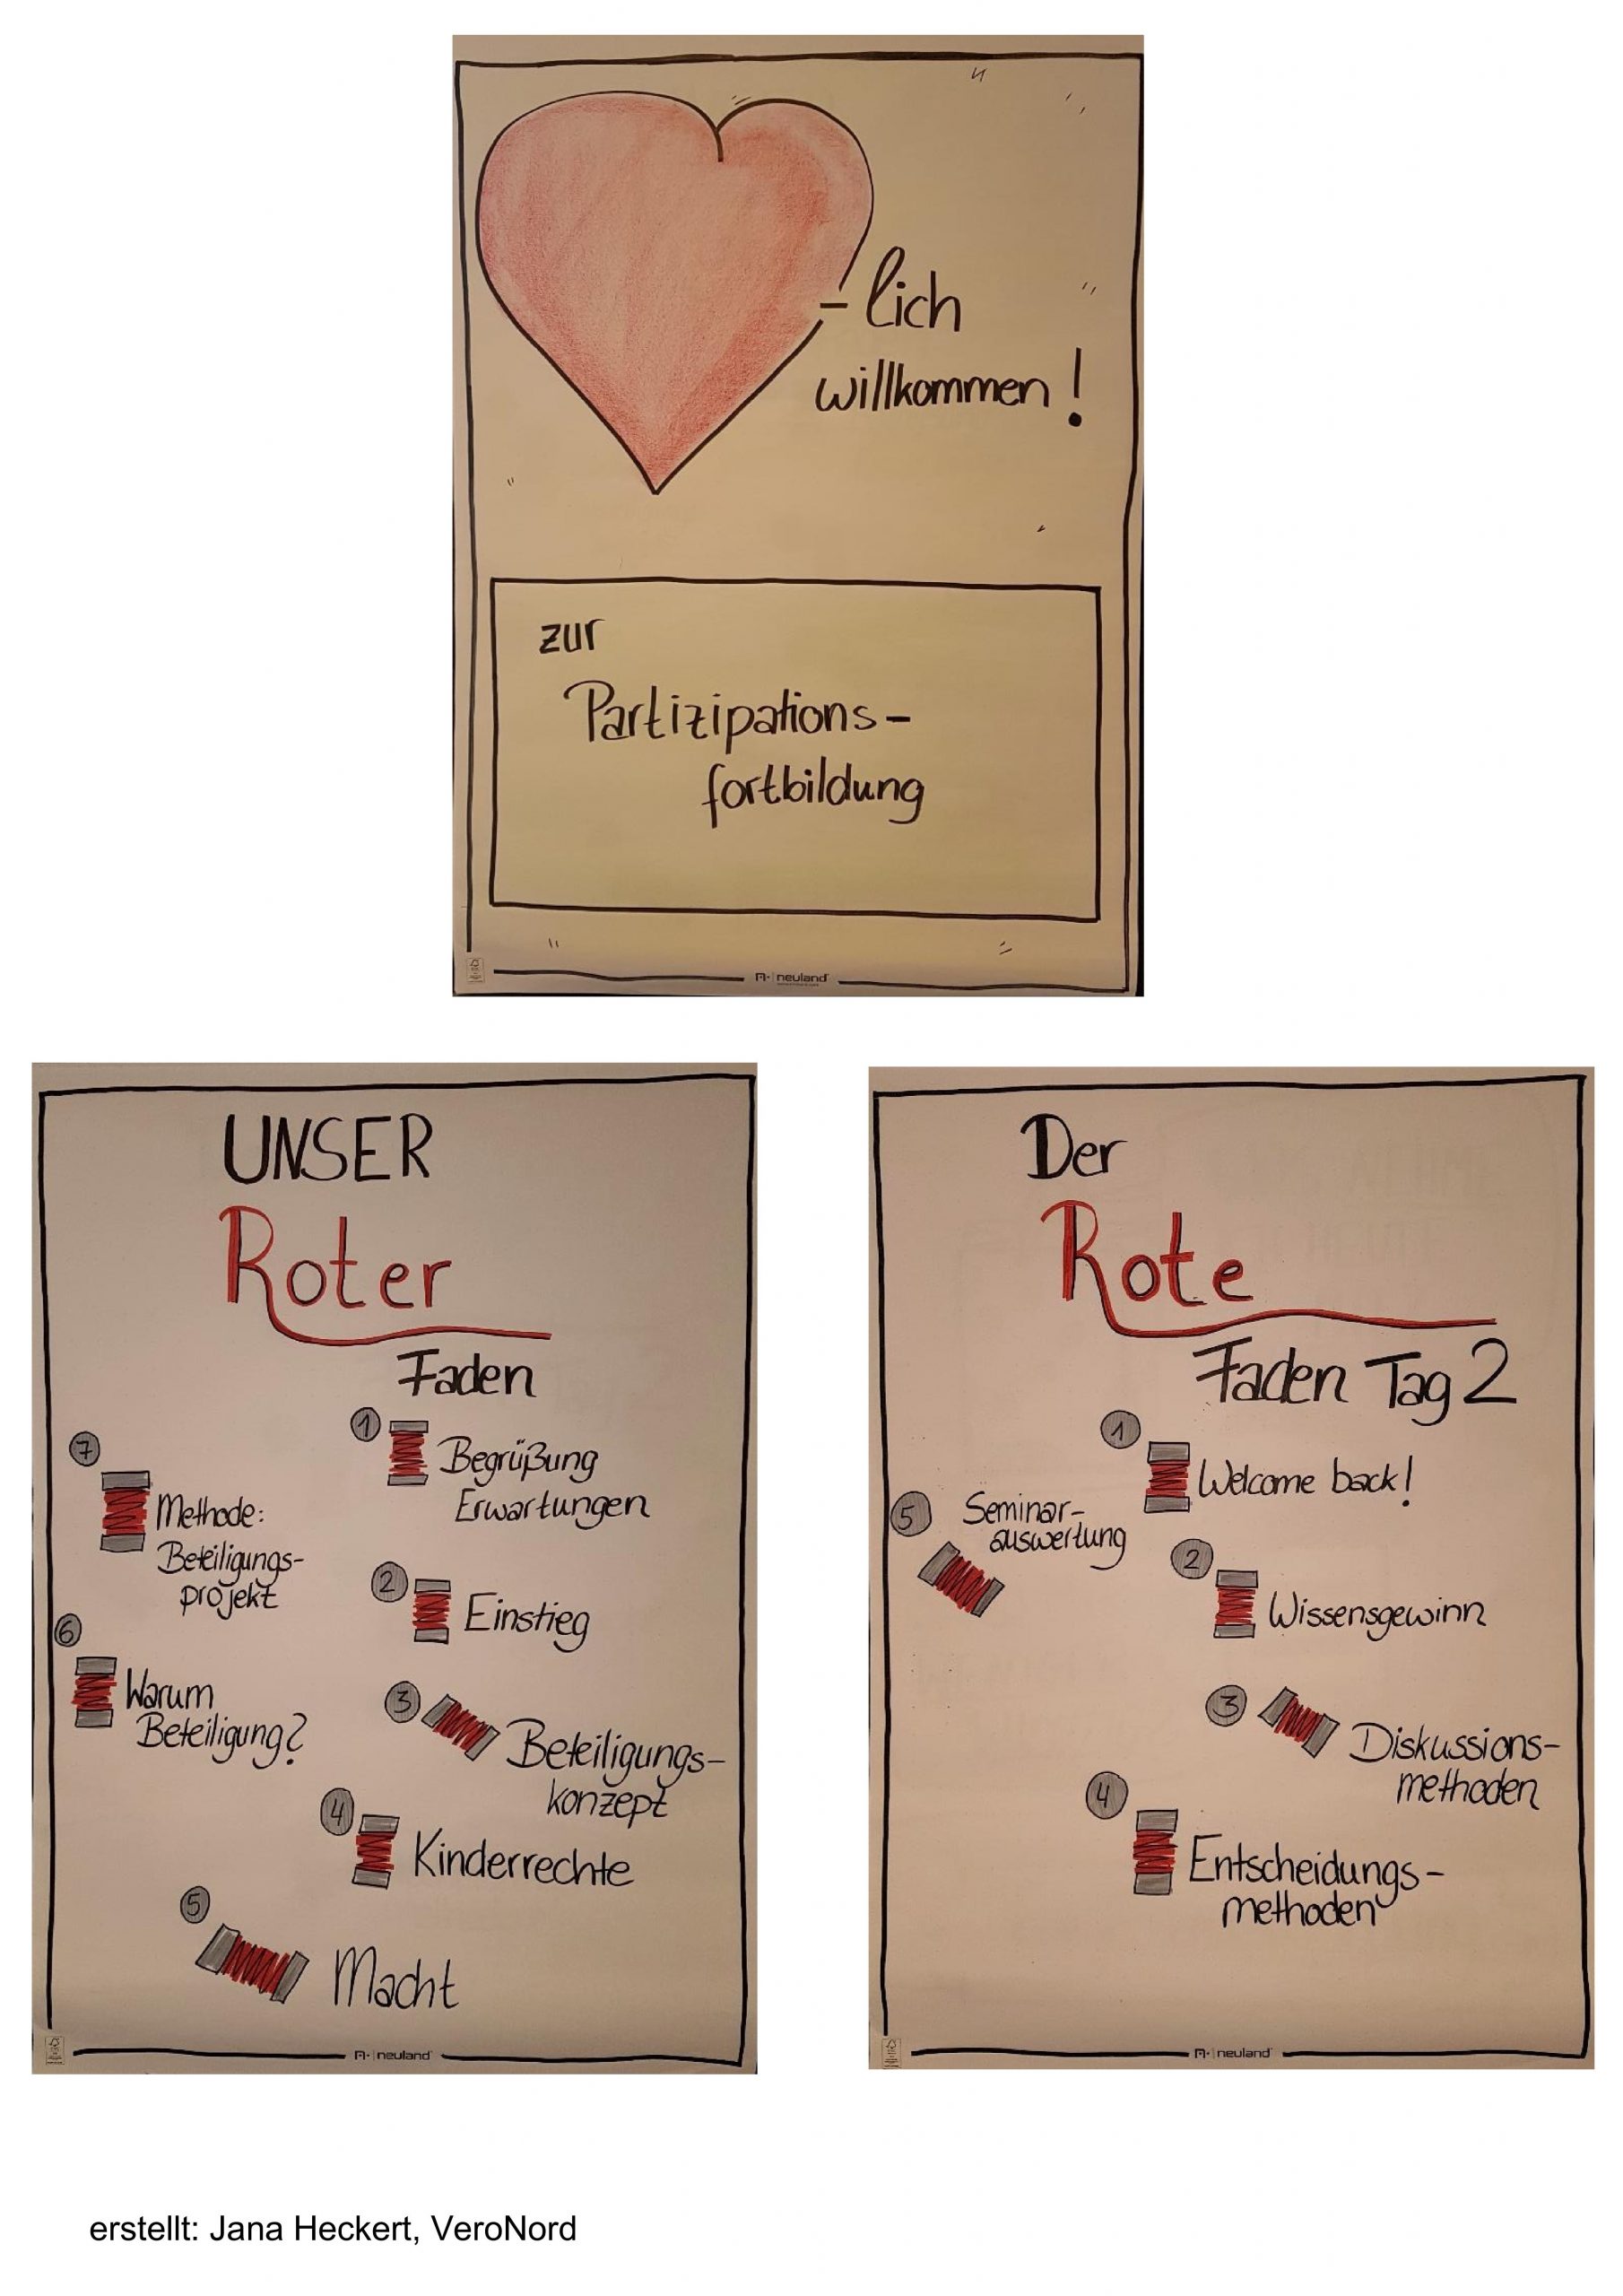 -lich
willkommen!
zur
Partizipations-
fortbildung
neuland
UNSER
Roter
Faden
1 Begrüßung
Erwartungen
2 Einstieg
3 Beteiligungs-
konzept
4 Kinderrechte
5 Macht
6 Warum
Beteiligung?
7 Methode:
Beteiligungs-
projekt
neuland
Der
Rote
Faden Tag 2
1 Welcome back!
2 Wissensgewinn
3 Diskussions-
methoden
4 Entscheidungs-
methoden
5 Seminar-
auswertung
neuland
erstellt: Jana Heckert, VeroNord